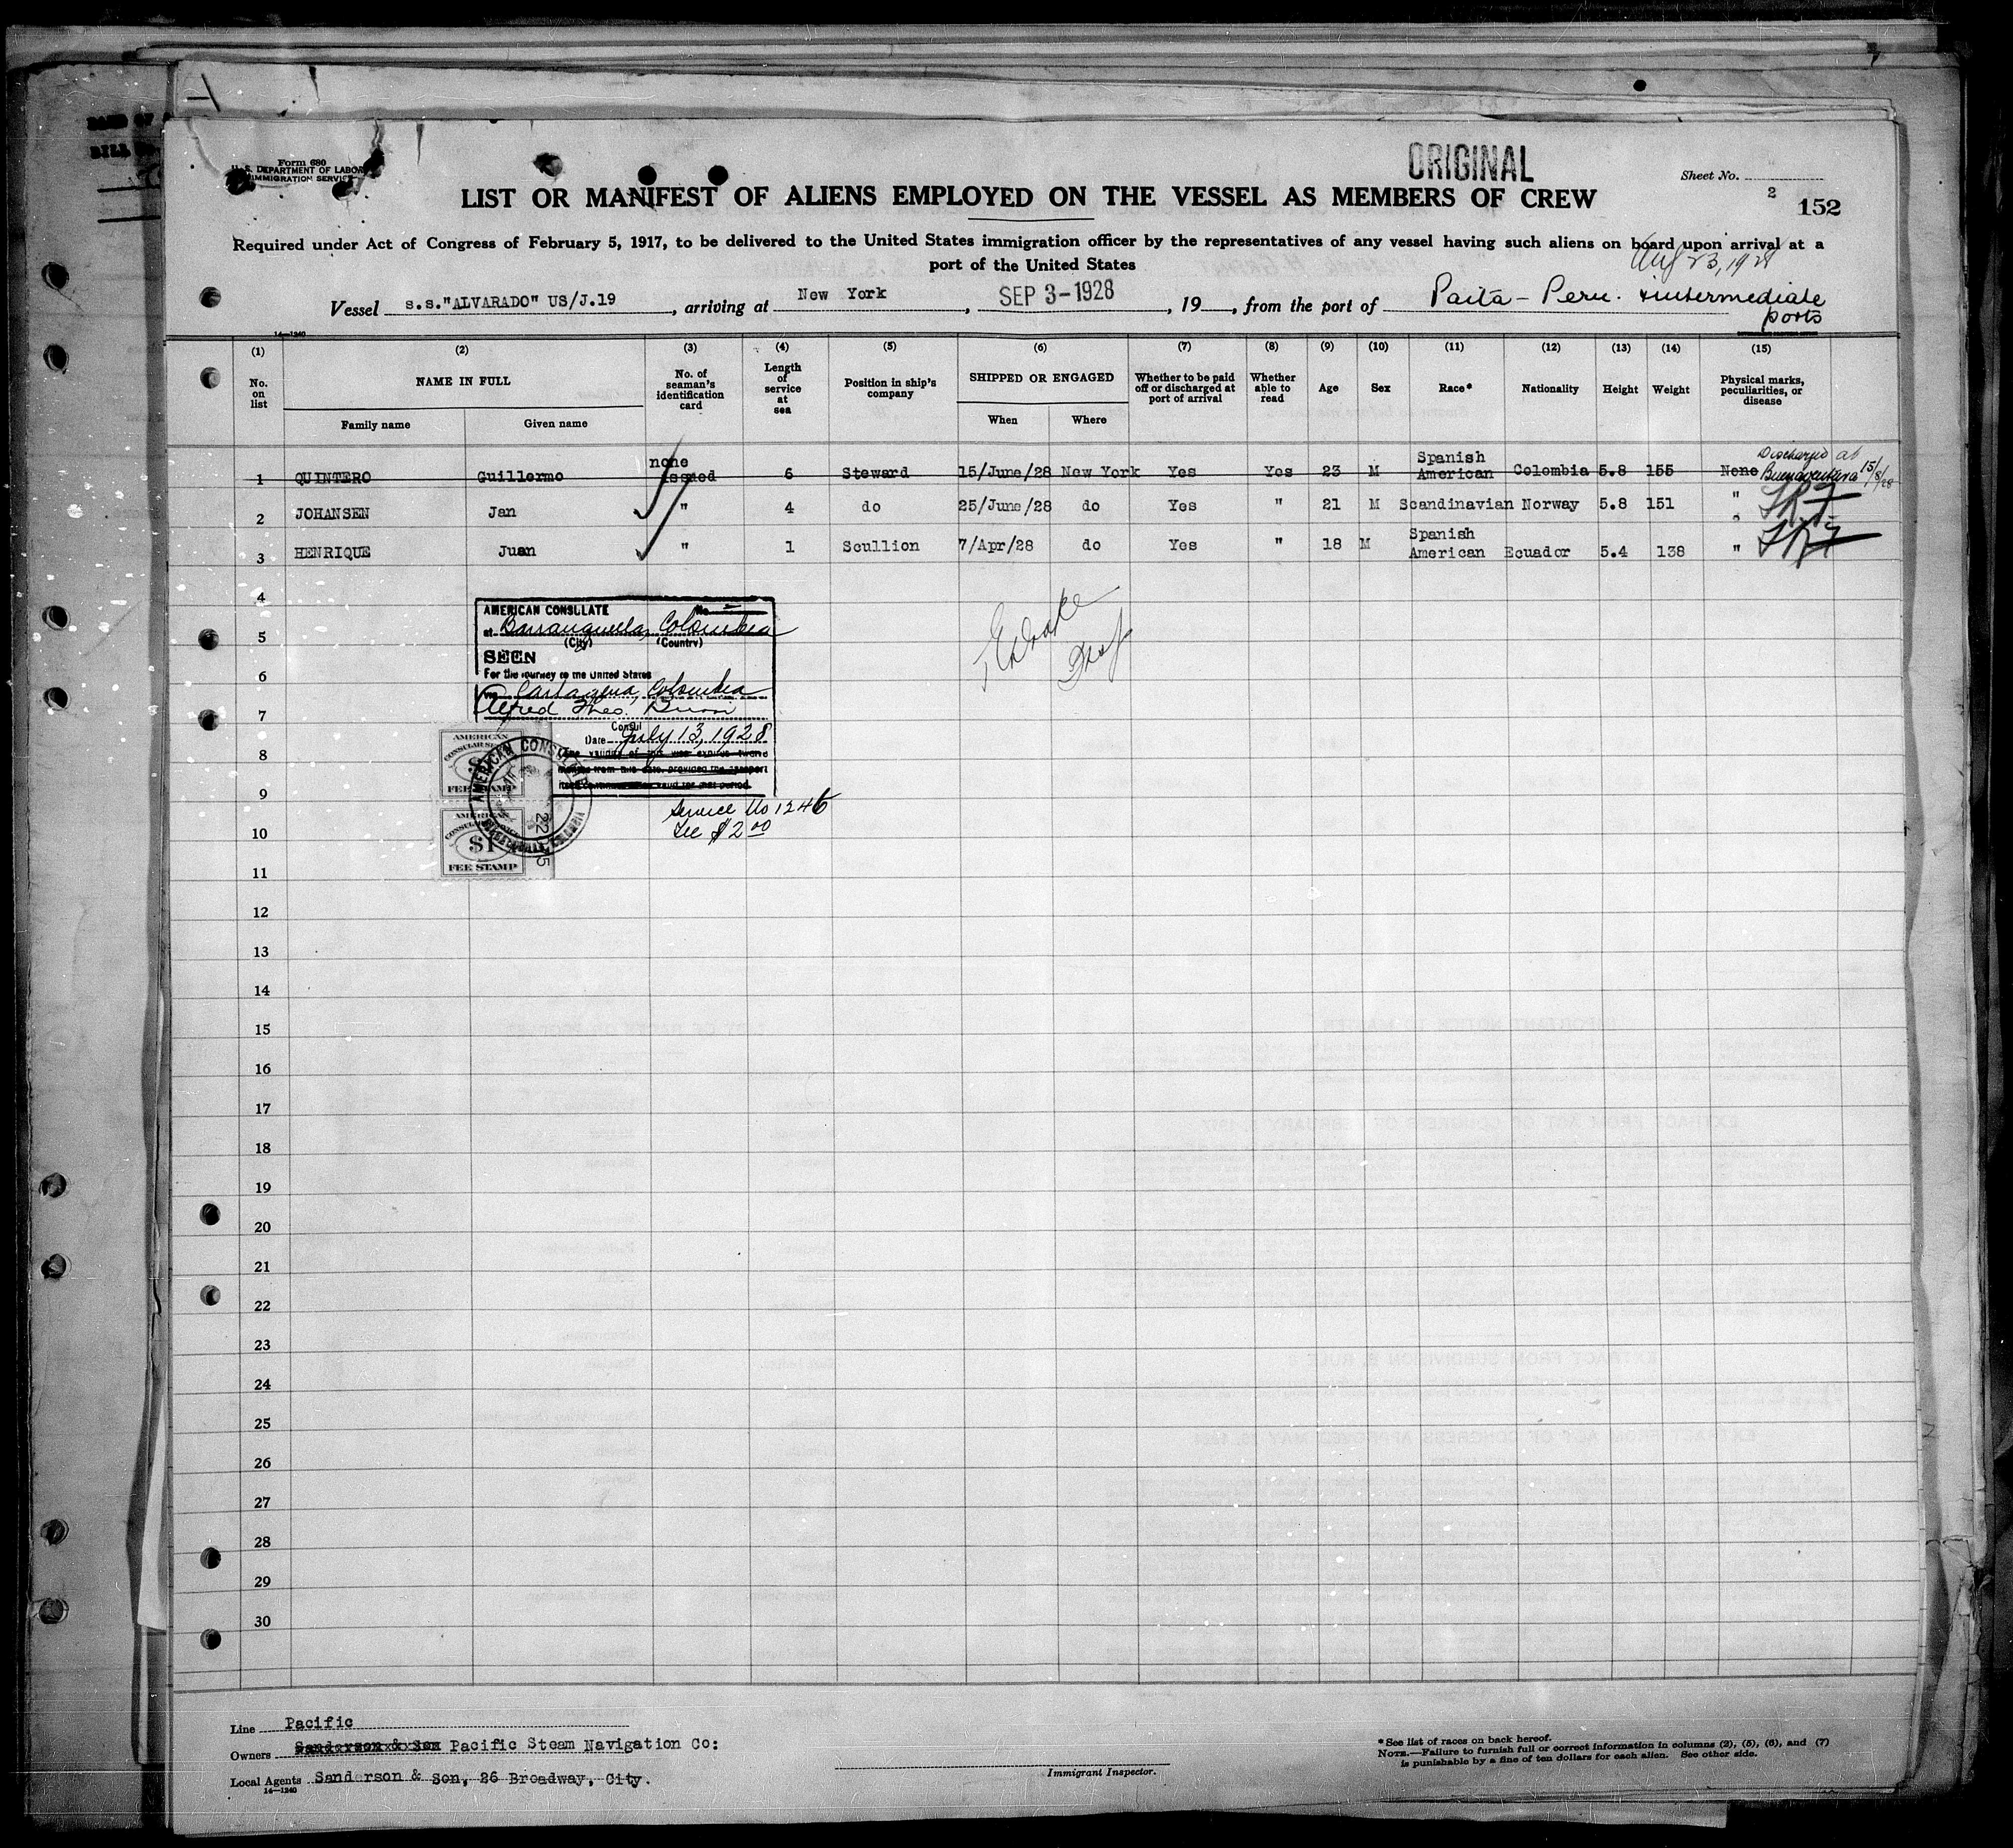 Form 680
U. S. DEPARTMENT OF LABOR
IMMIGRATION SERVICE
ORIGINAL
Sheet No. 2
152
LIST OR MANIFEST OF ALIENS EMPLOYED ON THE VESSEL AS MEMBERS OF CREW
Required under Act of Congress of February 5, 1917, to be delivered to the United States immigration officer by the representatives of any vessel having such aliens on board upon arrival at a
port of the United States
Aug 23, 1928
Vessel s.s."ALVARADO" US/J.19, arriving at New York, SEP 3-1928, 19, from the port of Paita - Peru. & intermediate
ports
14—1240
(1) (2) (3) (4) (5) (6) (7) (8) (9) (10) (11) (12) (13) (14) (15)
No. on list NAME IN FULL No. of seaman's identification card Length of service at sea Position in ship's company SHIPPED OR ENGAGED Whether to be paid off or discharged at port of arrival Whether able to read Age Sex Race* Nationality Height Weight Physical marks, peculiarities, or disease
Family name Given name When Where
1 QUINTERO Guillermo none issued 6 Steward 15/June/28 New York Yes Yes 23 M Spanish American Colombia 5.8 155 None Discharged at Buenaventura 15/8/28
2 JOHANSEN Jan " 4 do 25/June/28 do Yes " 21 M Scandinavian Norway 5.8 151 "
3 HENRIQUE Juan " 1 Scullion 7/Apr/28 do Yes " 18 M Spanish American Ecuador 5.4 138 "
4
5
6
7
8
9
10
11
12
13
14
15
16
17
18
19
20
21
22
23
24
25
26
27
28
29
30
AMERICAN CONSULATE No.
at Barranquilla, Colombia
(City) (Country)
SEEN
For the journey to the United States
via Cartagena, Colombia
Alfred Theo. Burri
Consul
Date July 13, 1928
Service No 1246
Fee $2.00
AMERICAN
CONSULAR SERVICE
FEE STAMP
AMERICAN
CONSULAR SERVICE
$1
FEE STAMP
AMERICAN CONSULATE
BARRANQUILLA, COLOMBIA
Line Pacific
Owners Sanderson & Son Pacific Steam Navigation Co:
Local Agents Sanderson & Son, 26 Broadway, City.
14—1240
Immigrant Inspector.
*See list of races on back hereof.
NOTE.—Failure to furnish full or correct information in columns (2), (5), (6), and (7)
is punishable by a fine of ten dollars for each alien. See other side.